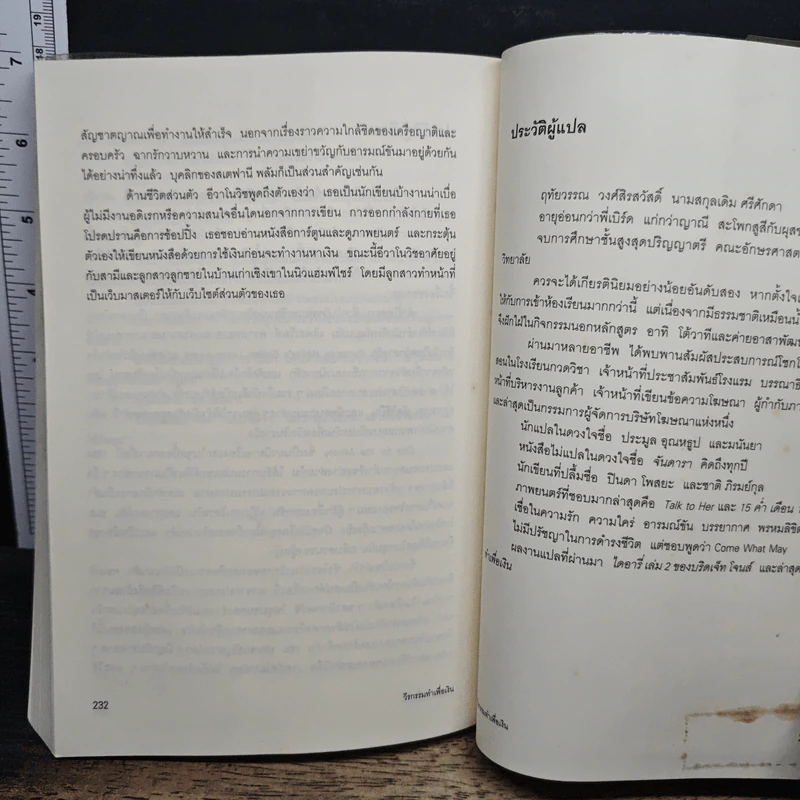 สัญชาตญาณเพื่อทำงานให้สำเร็จ นอกจากเรื่องราวความใกล้ชิดของเครือญาติและ
ครอบครัว ฉากรักวาบหวาน และการนำความเขย่าขวัญกับอารมณ์ขันมาอยู่ด้วยกัน
ได้อย่างน่าทึ่งแล้ว บุคลิกของสเตฟานี พลัมก็เป็นส่วนสำคัญเช่นกัน
ด้านชีวิตส่วนตัว อีวาโนวิชพูดถึงตัวเองว่า เธอเป็นนักเขียนบ้างานน่าเบื่อ
ผู้ไม่มีงานอดิเรกหรือความสนใจอื่นใดนอกจากการเขียน การออกกำลังกายที่เธอ
โปรดปรานคือการช้อปปิ้ง เธอชอบอ่านหนังสือการ์ตูนและดูภาพยนตร์ และกระตุ้น
ตัวเองให้เขียนหนังสือด้วยการใช้เงินก่อนจะทำงานหาเงิน ขณะนี้อีวาโนวิชอาศัยอยู่
กับสามีและลูกสาวลูกชายในบ้านเก่าเชิงเขาในนิวแฮมพ์ไชร์ โดยมีลูกสาวทำหน้าที่
เป็นเว็บมาสเตอร์ให้กับเว็บไซต์ส่วนตัวของเธอ
232
วีรกรรมทำเพื่อเงิน
ประวัติผู้แปล
ฤทัยวรรณ วงศ์สิรสวัสดิ์ นามสกุลเดิม ศรีศักดา
อายุอ่อนกว่าพี่เบิร์ด แก่กว่าญาณี สะโพกสูสีกับผุสช
จบการศึกษาชั้นสูงสุดปริญญาตรี คณะอักษรศาสต
วิทยาลัย
ควรจะได้เกียรตินิยมอย่างน้อยอันดับสอง หากตั้งใจ
ให้กับการเข้าห้องเรียนมากกว่านี้ แต่เนื่องจากมีธรรมชาติเหมือนน้ำ
จึงฝักใฝ่ในกิจกรรมนอกหลักสูตร อาทิ โต้วาทีและค่ายอาสาพัฒน
ผ่านมาหลายอาชีพ ได้พบพานสัมผัสประสบการณ์โชกโ
สอนในโรงเรียนกวดวิชา เจ้าหน้าที่ประชาสัมพันธ์โรงแรม บรรณาธิ
หน้าที่บริหารงานลูกค้า เจ้าหน้าที่เขียนข้อความโฆษณา ผู้กำกับภา
และล่าสุดเป็นกรรมการผู้จัดการบริษัทโฆษณาแห่งหนึ่ง
นักแปลในดวงใจชื่อ ประมูล อุณหธูป และมนันยา
หนังสือไม่แปลในดวงใจชื่อ จันดารา คิดถึงทุกปี
นักเขียนที่ปลื้มชื่อ ปินดา โพสยะ และชาติ ภิรมย์กุล
ภาพยนตร์ที่ชอบมากล่าสุดคือ Talk to Her และ 15 ค่ำ เดือน
เชื่อในความรัก ความใคร่ อารมณ์ขัน บรรยากาศ พรหมลิขิต
ไม่มีปรัชญาในการดำรงชีวิต แต่ชอบพูดว่า Come What May
ผลงานแปลที่ผ่านมา ไดอารี่ เล่ม 2 ของบริดเจ็ท โจนส์ และล่าสุด
ทำเพื่อเงิน
รรมทำเพื่อเงิน